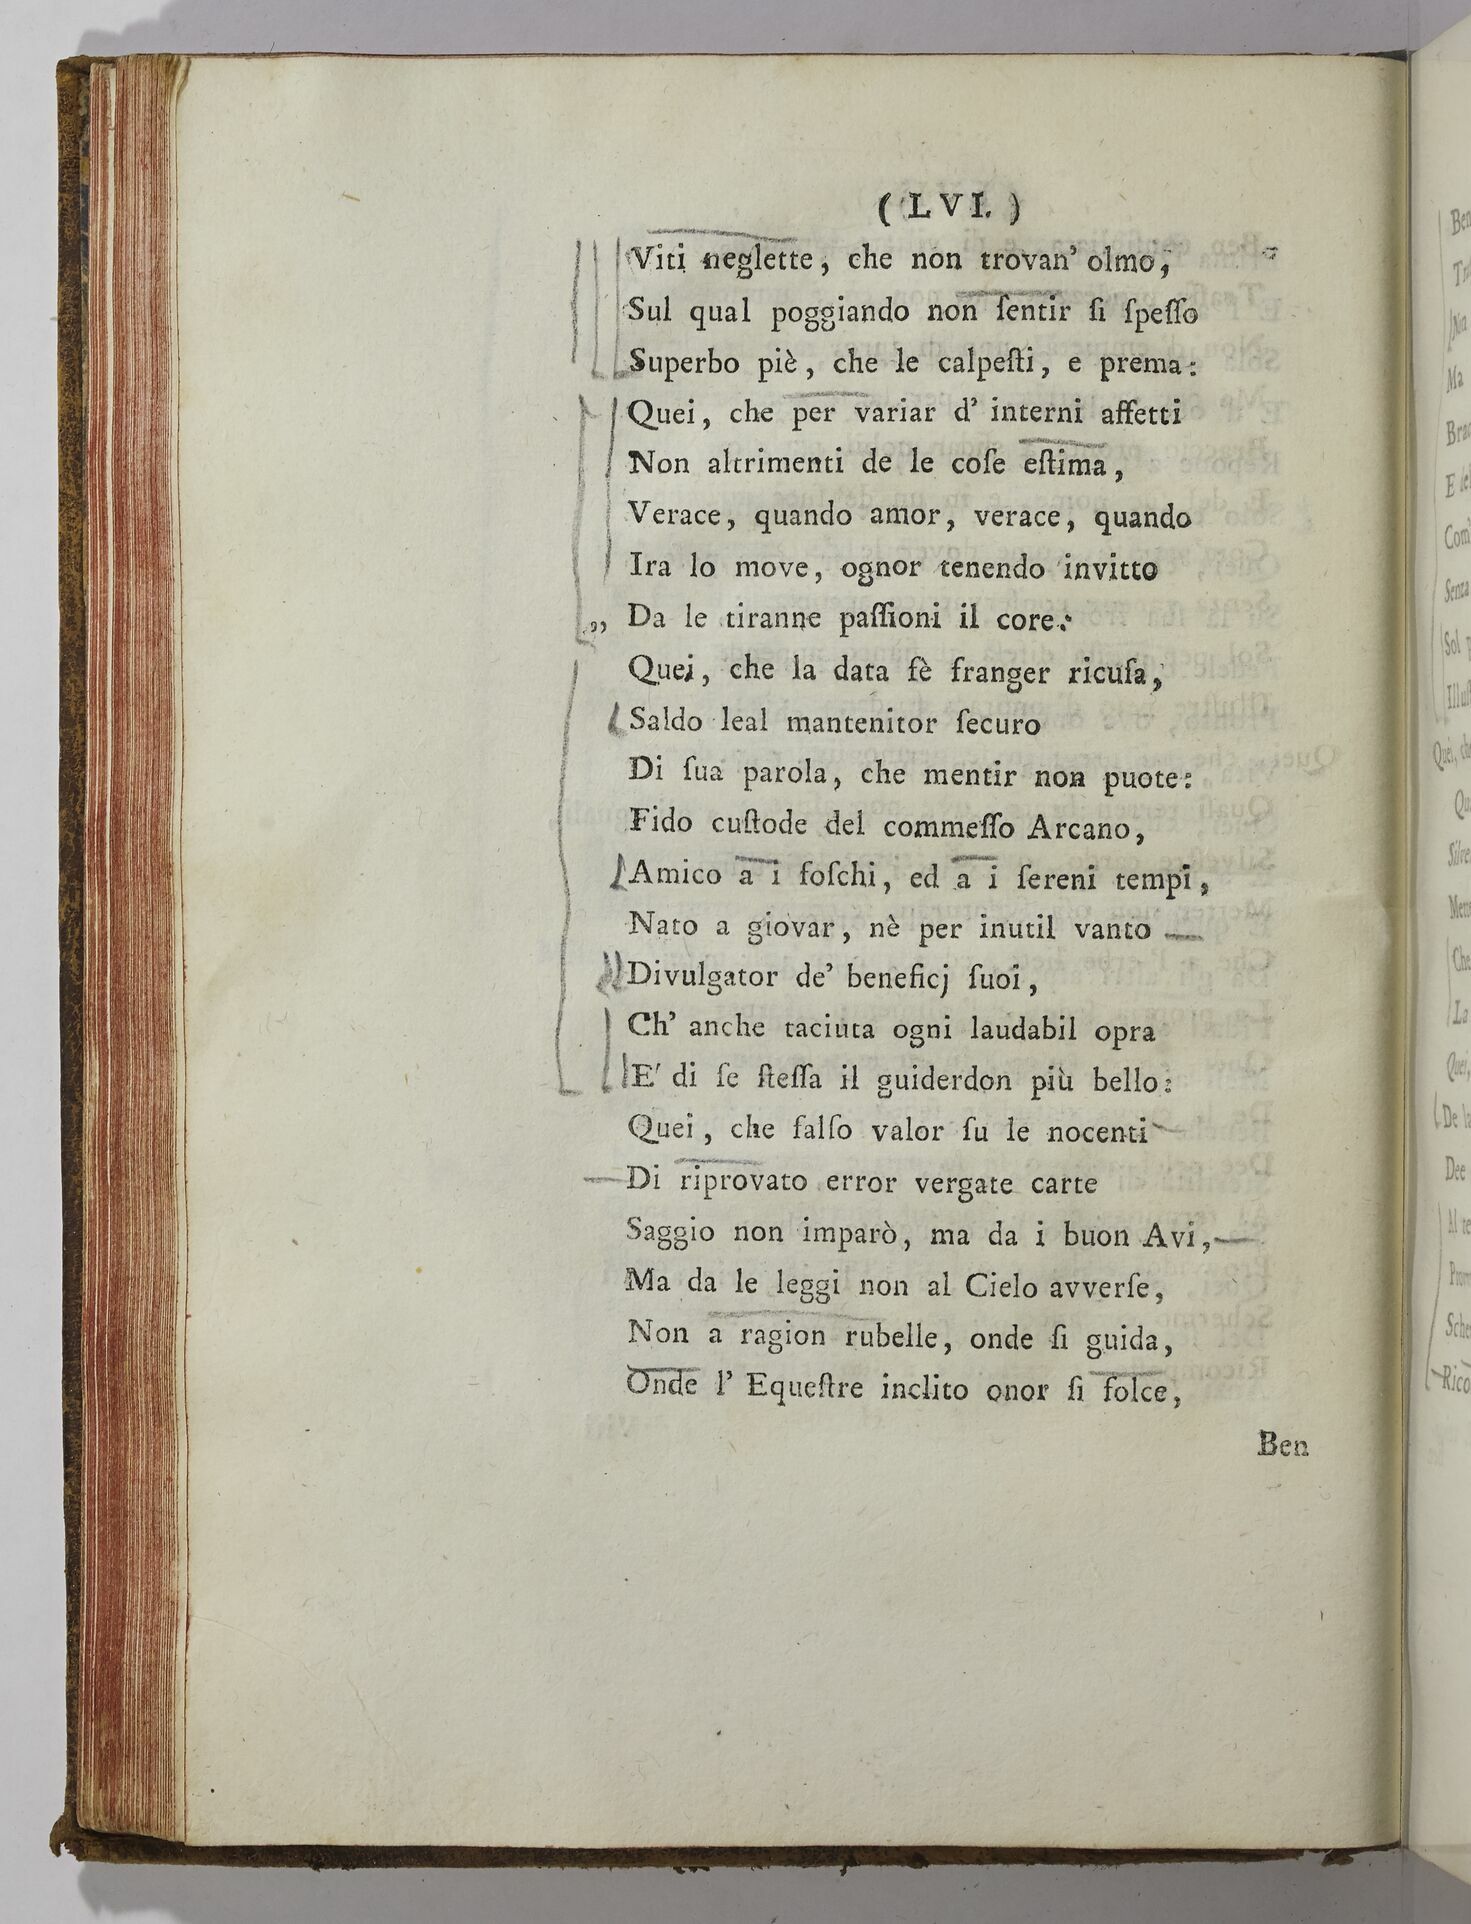 ( LVI. )
Viti neglette, che non trovan' olmo,
Sul qual poggiando non ſentir ſi ſpeſſo
Superbo piè, che le calpeſti, e prema:
Quei, che per variar d' interni affetti
Non altrimenti de le coſe eſtima,
Verace, quando amor, verace, quando
Ira lo move, ognor tenendo invitto
„ Da le tiranne paſſioni il core:
Quei, che la data fè franger ricuſa,
Saldo leal mantenitor ſecuro
Di ſua parola, che mentir non puote:
Fido cuſtode del commeſſo Arcano,
Amico a i foſchi, ed a i ſereni tempi,
Nato a giovar, nè per inutil vanto
Divulgator de' beneficj ſuoi,
Ch' anche taciuta ogni laudabil opra
E' di ſe ſteſſa il guiderdon più bello:
Quei, che falſo valor ſu le nocenti
Di riprovato error vergate carte
Saggio non imparò, ma da i buon Avi,
Ma da le leggi non al Cielo avverſe,
Non a ragion rubelle, onde ſi guida,
Onde l' Equeſtre inclito onor ſi folce,
Ben